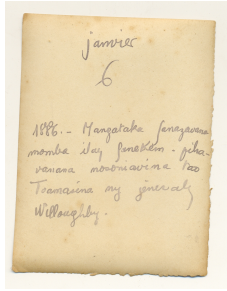 janvier
6
1886. - Mangataka fanazavana
momba ilay fenekem-piha-
vanana nosoniavina tao
Toamasina ny jeneraly
Willoughby.